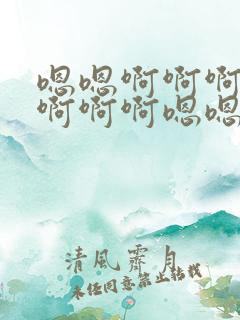 嗯嗯啊啊啊
啊啊啊嗯嗯
清風霽月
未经同意禁止转载